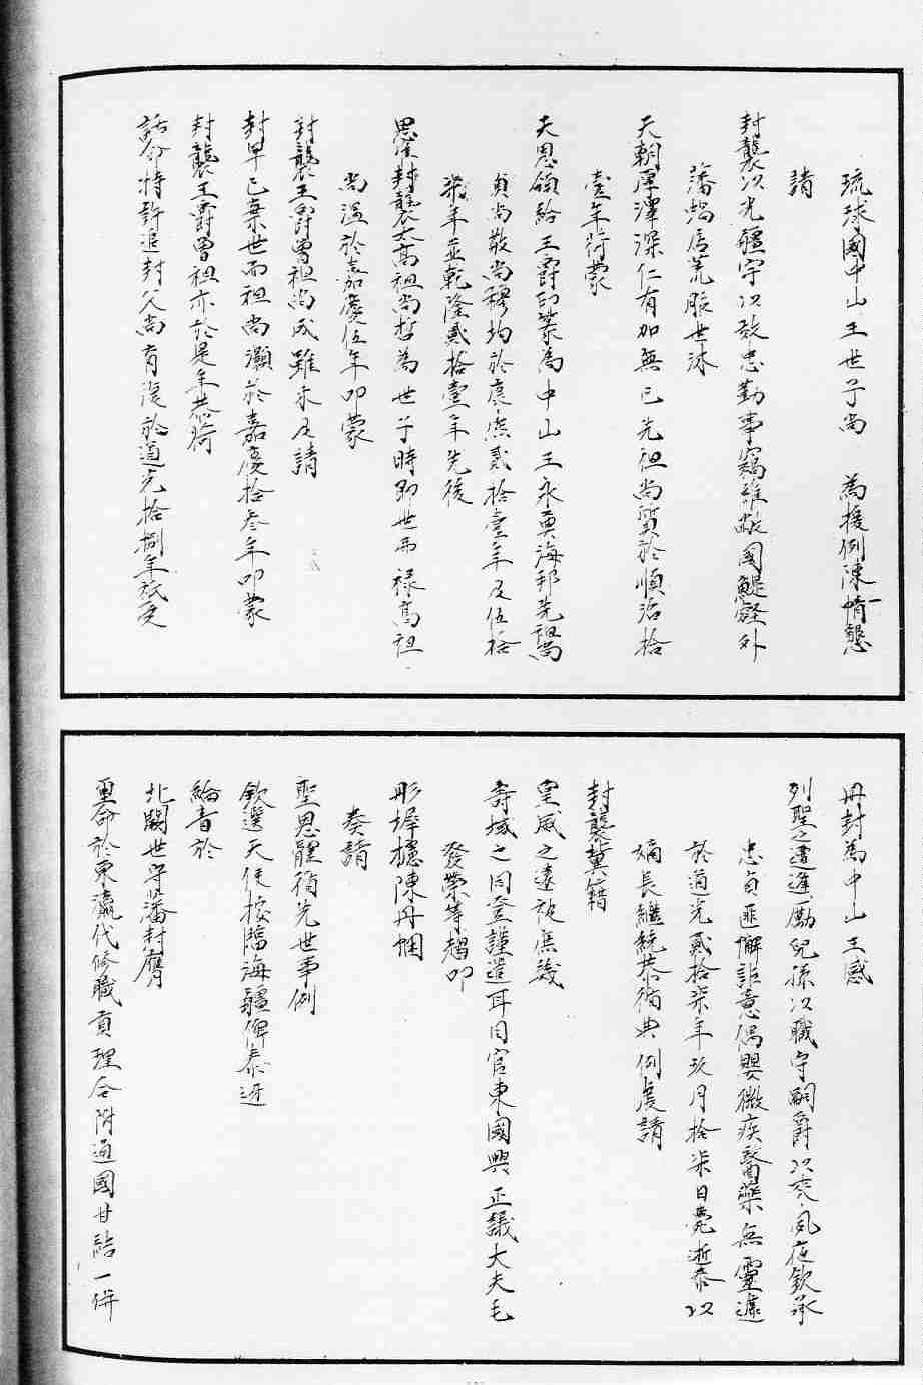 琉球國中山王世子尚　為援例陳情懇
請
封襲以光疆宇以效忠勤事竊維敝國鯷壑外
藩蝸居荒服世沐
天朝厚澤深仁有加無已先祖尚質於順治拾
壹年荷蒙
天恩頒給王爵印篆為中山王永奠海邦先王尚
貞尚敬尚穆均於康熙貳拾壹年及伍拾
柒年並乾隆貳拾壹年先後
恩准封襲太高祖尚哲為世子時即世而祿高祖
尚溫於嘉慶伍年叩蒙
封襲王爵曾祖尚成雖未及請
封早已棄世而祖尚灝於嘉慶拾叁年叩蒙
封襲王爵曾祖亦於是年恭荷
誥命特許追封父尚育復於道光拾捌年祇受
冊封為中山王感
列聖之遭逢勵兒孫以職守嗣爵以來夙夜欽承
忠貞匪懈詎意偶嬰微疾醫藥無靈遽
於道光貳拾柒年玖月拾柒日薨逝泰以
嫡長繼統恭循典例虔請
封襲冀藉
皇威之遠被庶幾
壽域之同登謹遣耳目官東國興正議大夫毛
發榮等趨叩
彤墀攄陳丹悃
奏請
聖恩體循先世事例
欽選天使按臨海疆俾泰迓
綸音於
北闕世守藩封膺
重命於東瀛代修職貢理合附通國甘結一併